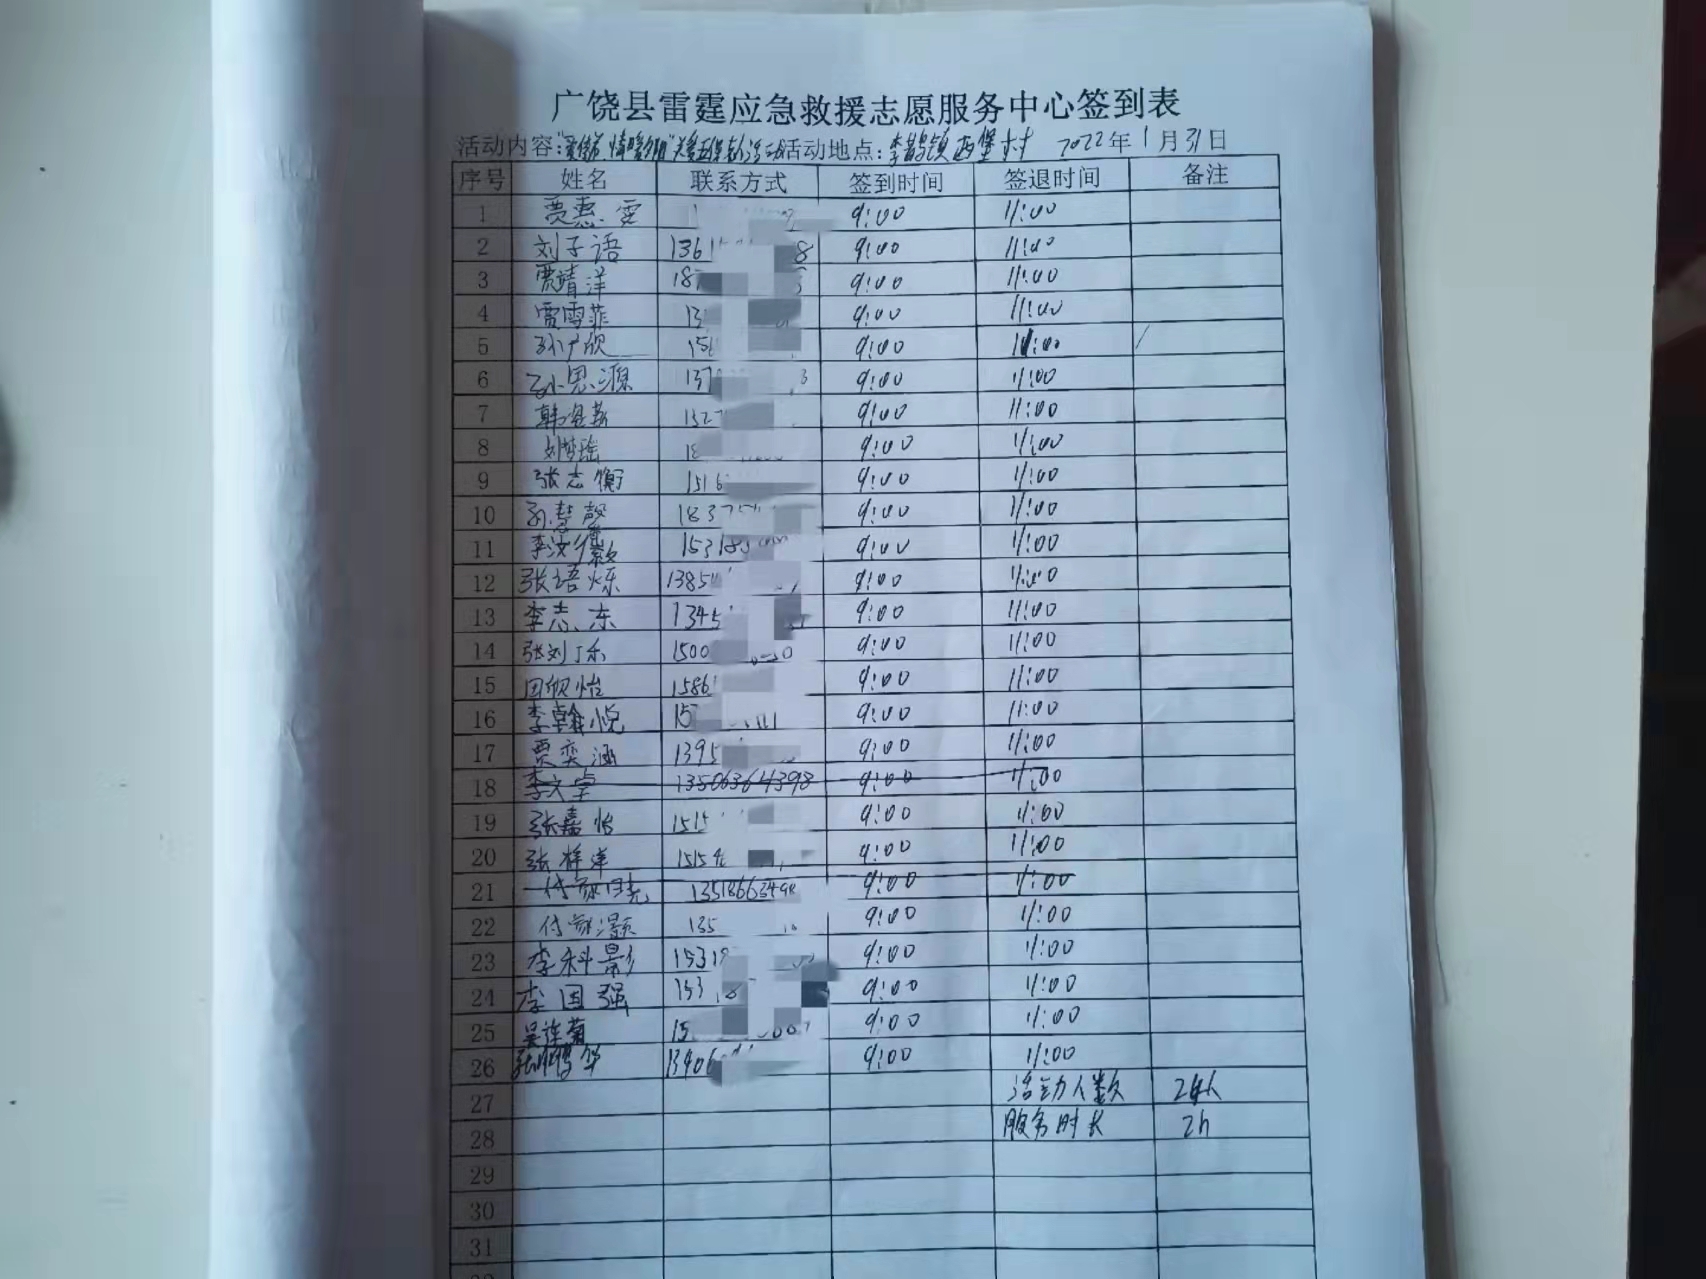 广饶县雷霆应急救援志愿服务中心签到表
活动内容: 活动地点:李鹊镇西堡村 2022年1月31日
序号 姓名 联系方式 签到时间 签退时间 备注
1 贾惠雯 9:00 11:00
2 刘子语 1361 8 9:00 11:00
3 贾靖洋 18 9:00 11:00
4 贾雪菲 13 9:00 11:00
5 孙广欣 15 9:00 11:00
6 孙思源 137 3 9:00 11:00
7 韩 152 9:00 11:00
8 刘梦瑶 18 9:00 11:00
9 张志衡 1516 9:00 11:00
10 孙慧馨 1837 9:00 11:00
11 李汝徽 15318 9:00 11:00
12 张语烁 1385 9:00 11:00
13 李志东 1345 9:00 11:00
14 张刘乐 1500 9:00 11:00
15 田欣怡 1586 9:00 11:00
16 李翰悦 15 9:00 11:00
17 贾奕涵 1395 9:00 11:00
18 李文卓 13506364398 9:00 11:00
19 张嘉怡 1515 9:00 11:00
20 张梓洋 1515 9:00 11:00
21 付家 9:00 11:00
22 付家灏 135 9:00 11:00
23 李科影 1531 9:00 11:00
24 李国强 153 9:00 11:00
25 吴连菊 15 9:00 11:00
26 张鹏华 13406 9:00 11:00
27 活动人数 24人
28 服务时长 2h
29
30
31